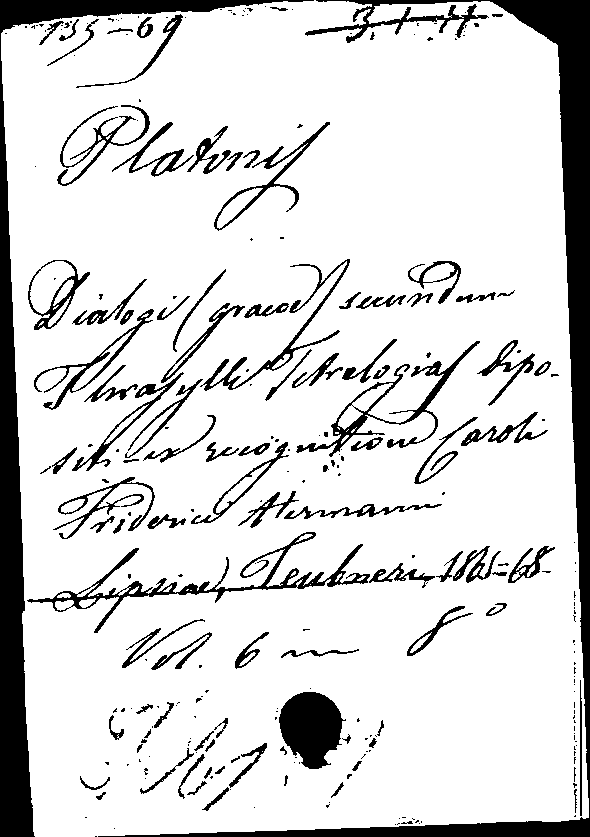 135-69 3.1.77.
Platonis
Dialogi (graece) secundum
Thrasylli Tetralogias dispo-
siti - ex recognitione Caroli
Friderici Hermanni
Lipsiae, Teubneri, 1861-68
Vol. 6 in 8°